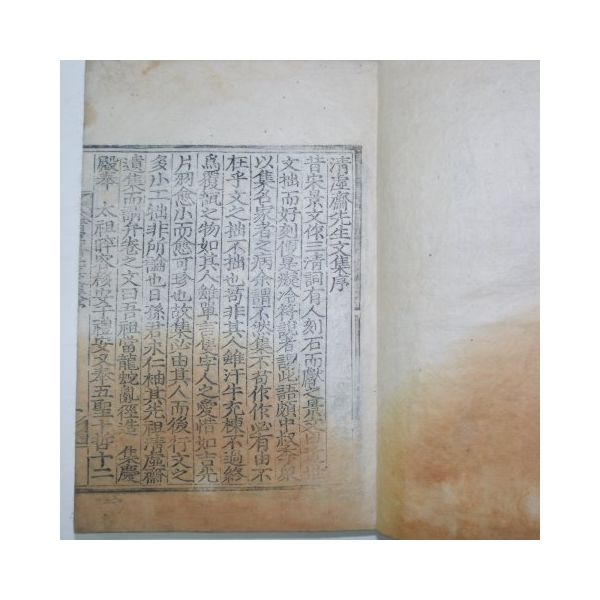 清虛齋先生文集序
昔宋景文作三清詞有人刻石而獻之景文曰
文拙而好刻謂是癡冷符說者認此語願中叔季泉
以集名家者之病余謂不然集不苟作作必有由不
枉乎文之拙不拙也苟非其人雖汗牛充棟不過終
爲覆瓿之物如其人雖單言隻字人之愛惜如吉光
片羽愈小而愈可珍也故集必由其人而後行文之
多小工拙非所論也日孫君永仁袖其先祖清虛齋
遺集而謂弁卷之文曰吾祖當龍蛇亂徑造 集慶
殿奉 太祖睟容移安于禮安又奉五聖十哲十二